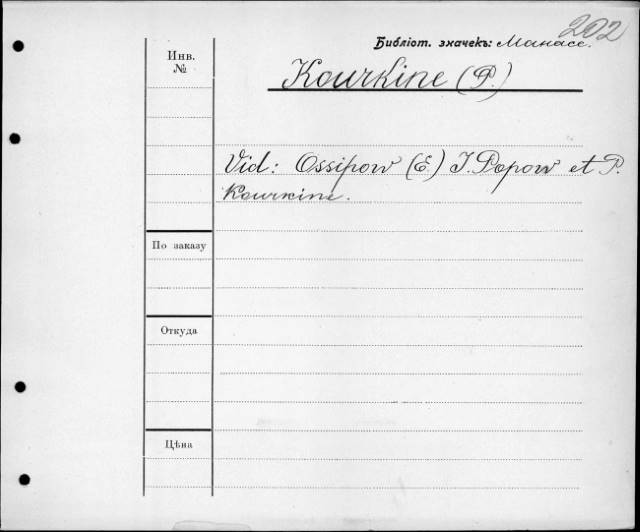 202
Библіот. значекъ: Манасс.
Инв.
№
Kourkine (P.)
Vid: Ossipow (E.) I. Popow et P.
Kourkine.
По заказу
Откуда
Цѣна